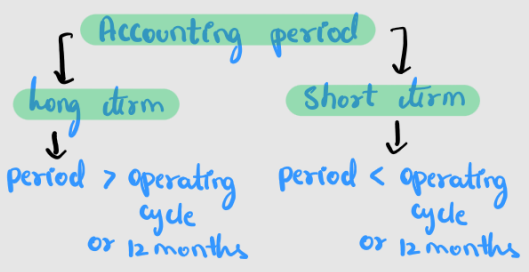 Accounting period
Long term
Short term
period > operating
cycle
or 12 months
period < operating
cycle
or 12 months